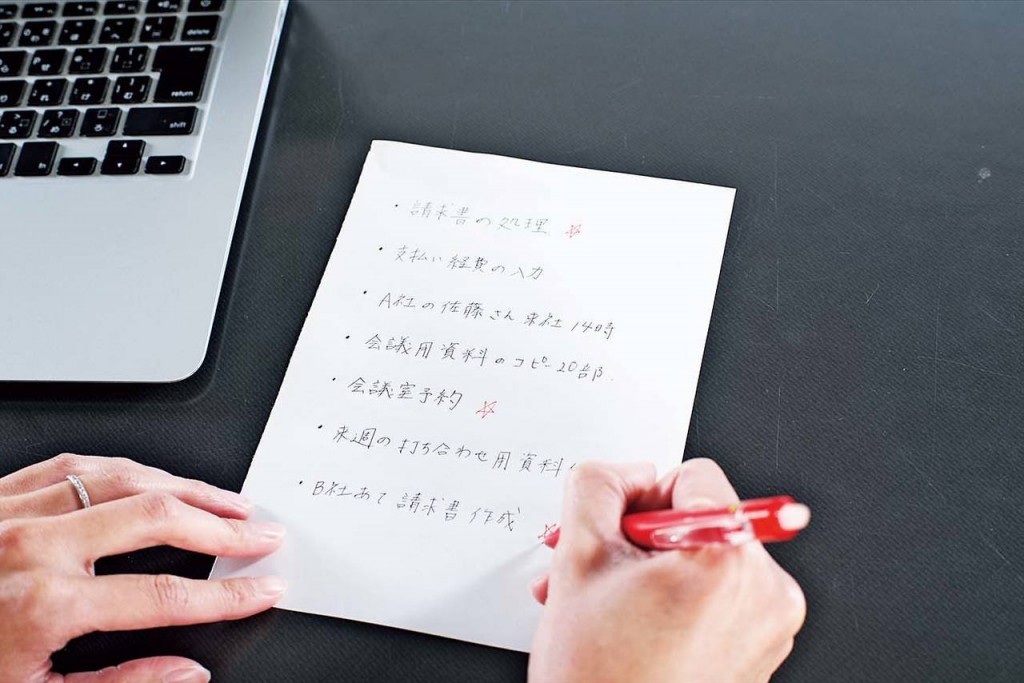 ・請求書の処理 ☆
・支払い経費の入力
・A社の佐藤さん来社 14時
・会議用資料のコピー20部
・会議室予約 ☆
・来週の打ち合わせ用資料
・B社あて請求書作成 ☆
delete
return
shift